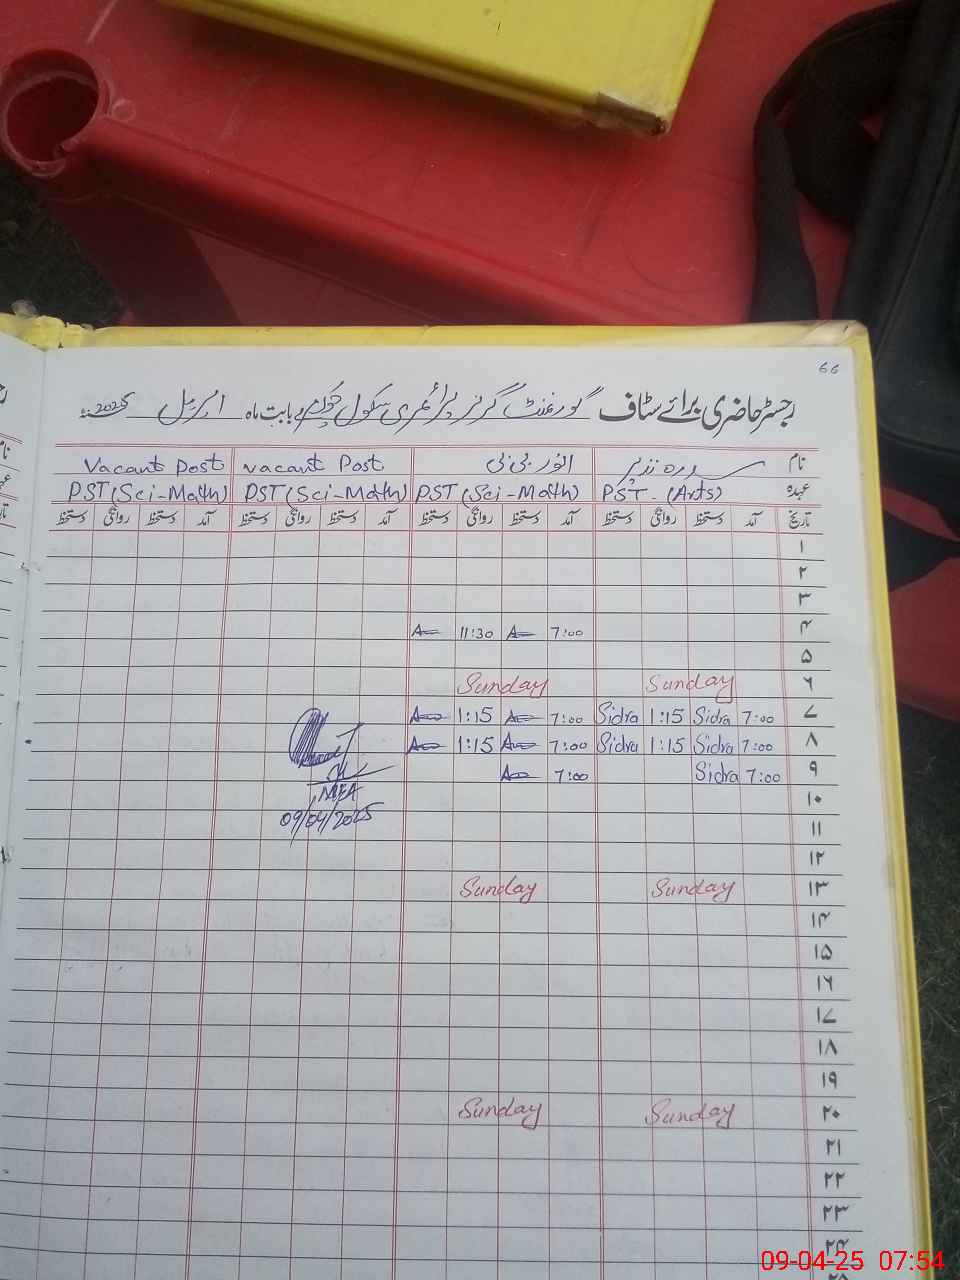 66
رجسٹر حاضری برائے سٹاف گورنمنٹ گرلز پرائمری سکول بابت ماہ اپریل 2025
نام سدرہ نذیر انور بی بی Vacant Post Vacant Post
عہدہ PST - (Arts) PST (Sci-Math) PST (Sci-Math) PST (Sci-Math)
تاریخ آمد دستخط روانگی دستخط آمد دستخط روانگی دستخط آمد دستخط روانگی دستخط آمد دستخط روانگی دستخط
۱
۲
۳
۴ 7:00 11:30
۵
۶ Sunday Sunday
۷ 7:00 Sidra 1:15 Sidra 7:00 1:15
۸ 7:00 Sidra 1:15 Sidra 7:00 1:15
۹ 7:00 Sidra 7:00
09/04/2025
۱۰
۱۱
۱۲
۱۳ Sunday Sunday
۱۴
۱۵
۱۶
۱۷
۱۸
۱۹
۲۰ Sunday Sunday
۲۱
۲۲
۲۳
۲۴
09-04-25 07:54